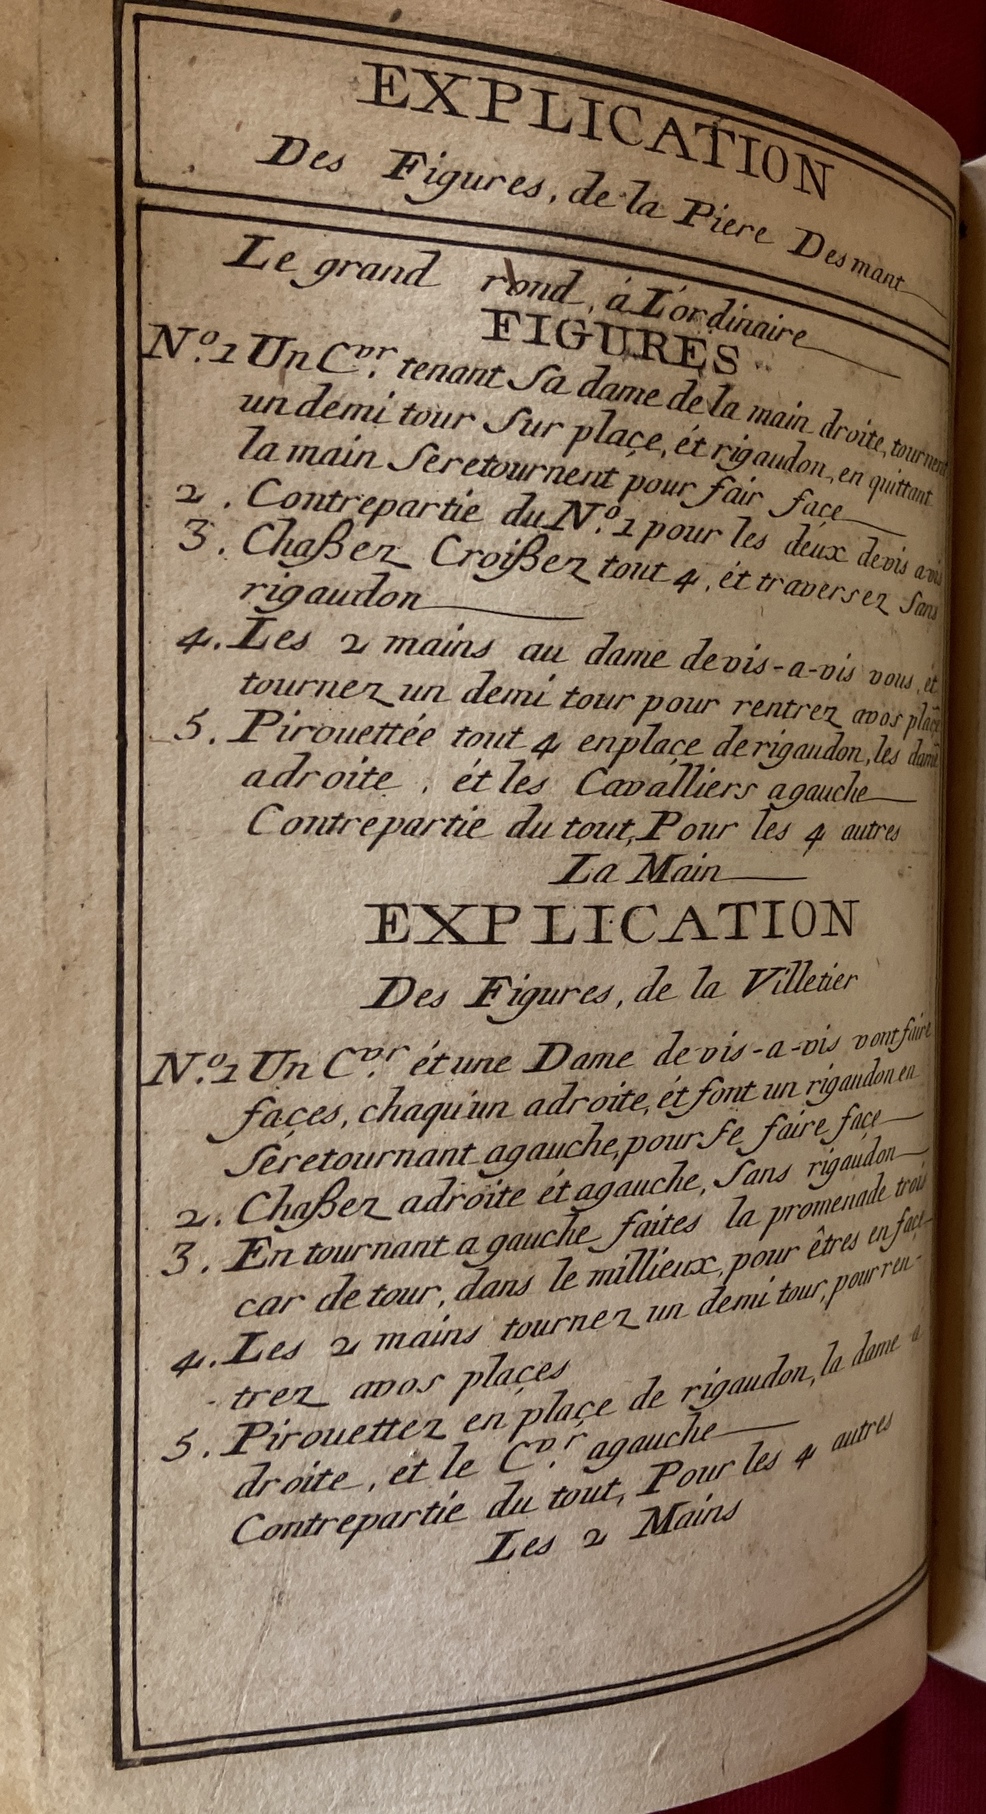 EXPLICATION
Des Figures, de la Piere Desmant
Le grand rond, á L'ordinaire
FIGURES
N.º 1 Un C.vr tenant Sa dame de la main droite, tournent
un demi tour Sur plaçe, ét rigaudon, en quittant
la main Seretournent pour fair façe
2. Contrepartie du N.º 1 pour les deux devis avis
3. Chaßez Croißez tout 4, ét traversez Sans
rigaudon
4. Les 2 mains au dame devis-a-vis vous, ét
tournez un demi tour pour rentrez avos plaçe
5. Pirouettée tout 4 enplaçe derigaudon, les dame
adroite, ét les Cavalliers agauche
Contrepartie du tout, Pour les 4 autres
La Main
EXPLICATION
Des Figures, de la Villetier
N.º 1 Un C.vr ét une Dame devis-a-vis vont faire
façes, chaqu'un adroite, ét font un rigaudon en
Séretournant agauche, pour Se faire façe
2. Chaßez adroite ét agauche, Sans rigaudon
3. En tournant a gauche faites la promenade trois
car de tour, dans le millieux, pour êtres en façe
4. Les 2 mains tournez un demi tour, pour ren-
trez avos plaçes
5. Pirouettez en plaçe de rigaudon, la dame a
droite, et le C.vr agauche
Contrepartie du tout, Pour les 4 autres
Les 2 Mains